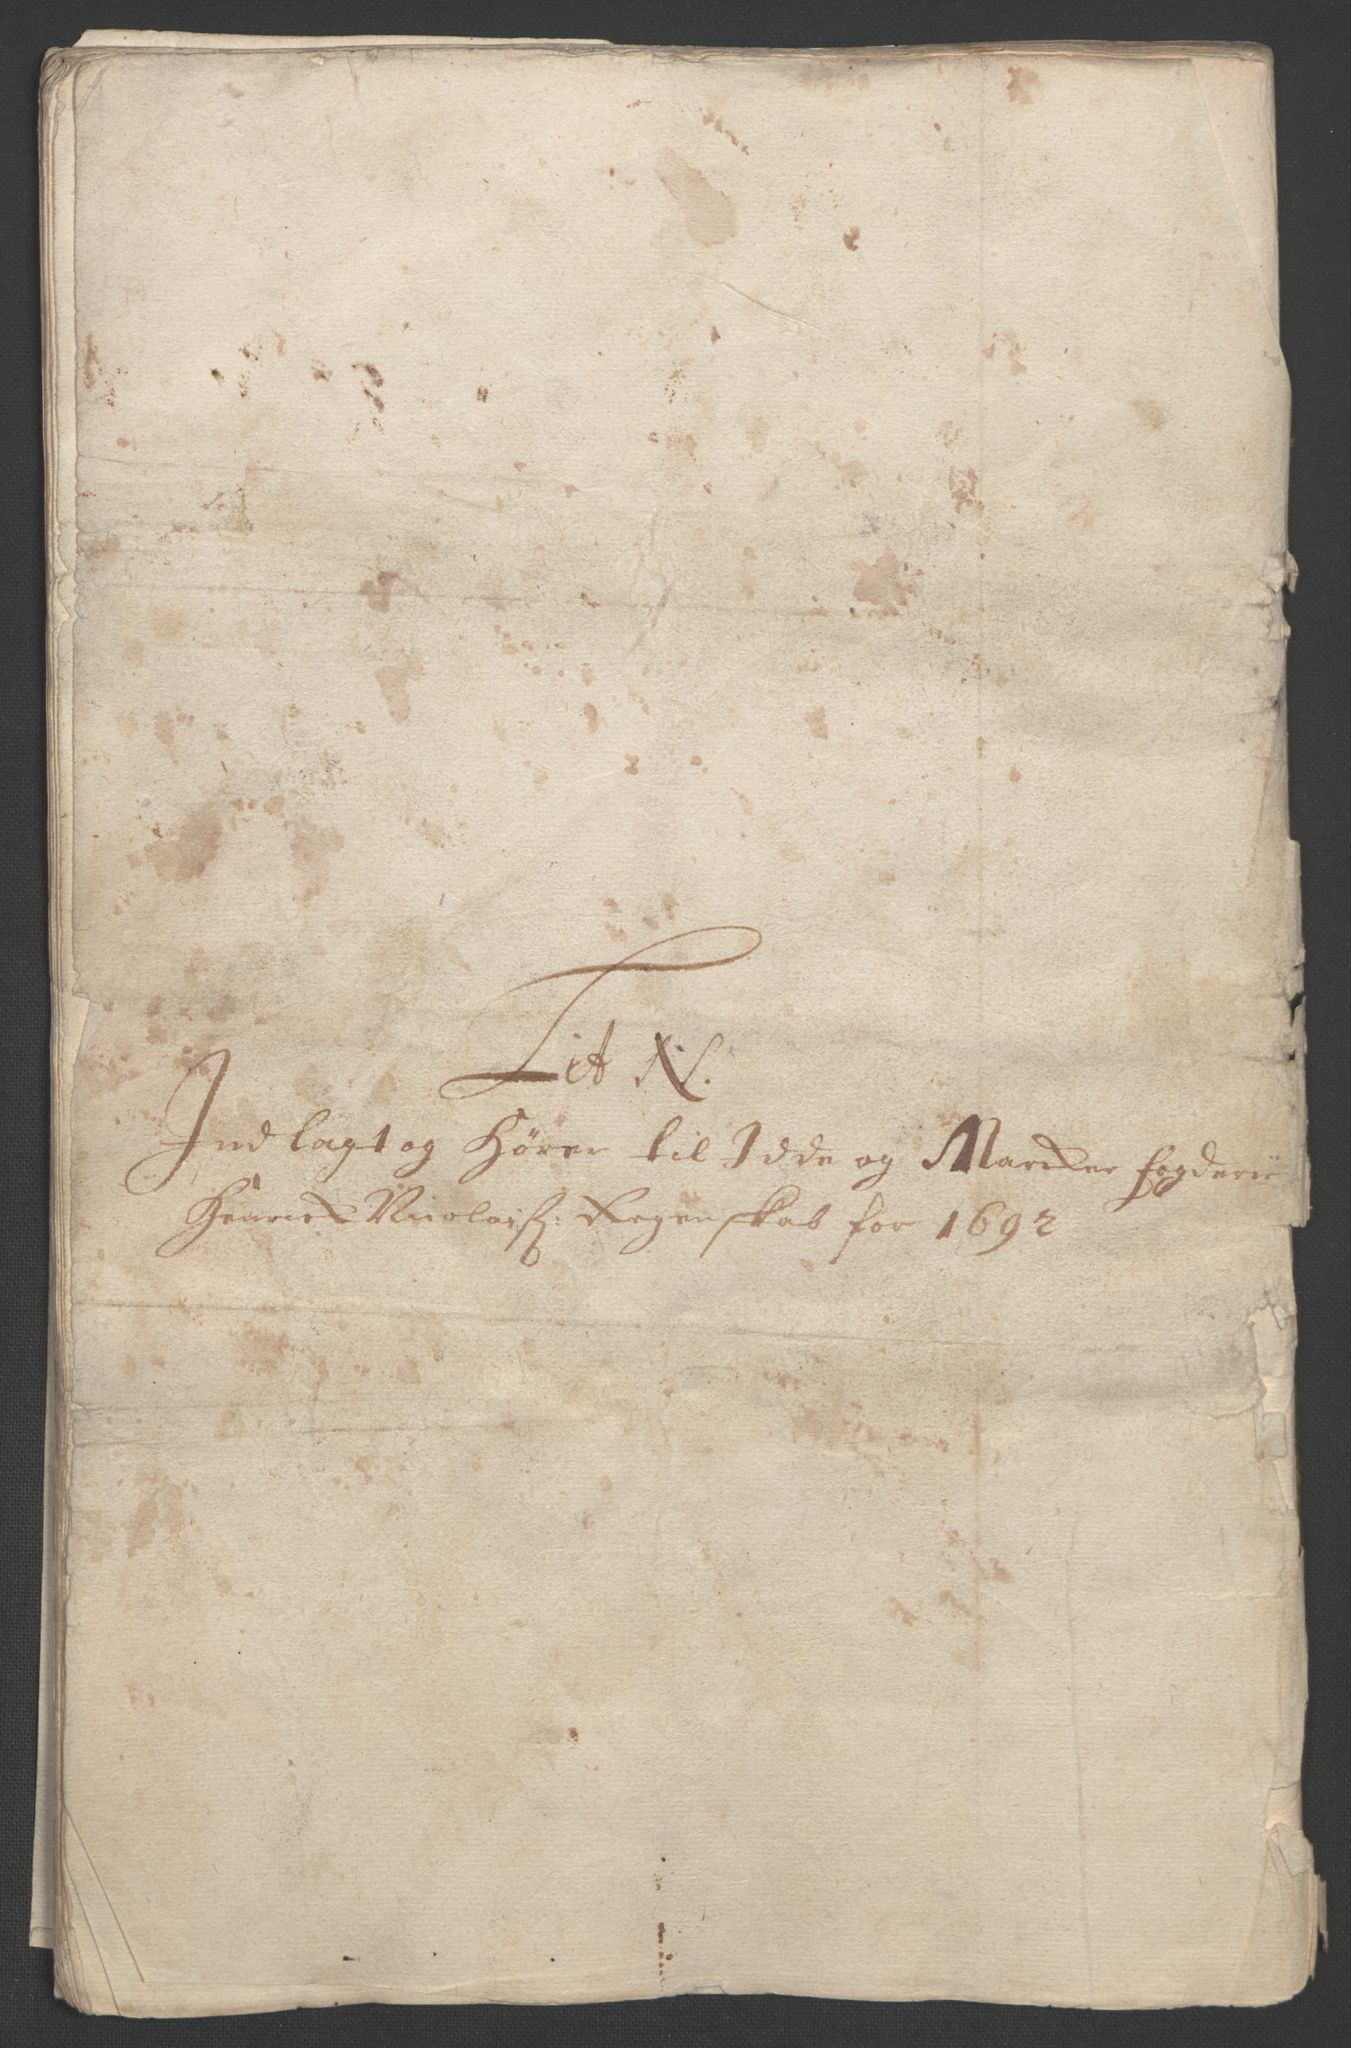 Lit N.
Indlagt og Hører til Idde og Marcker fogderie
Henrick Nicolaiß: Regenskab for 1692